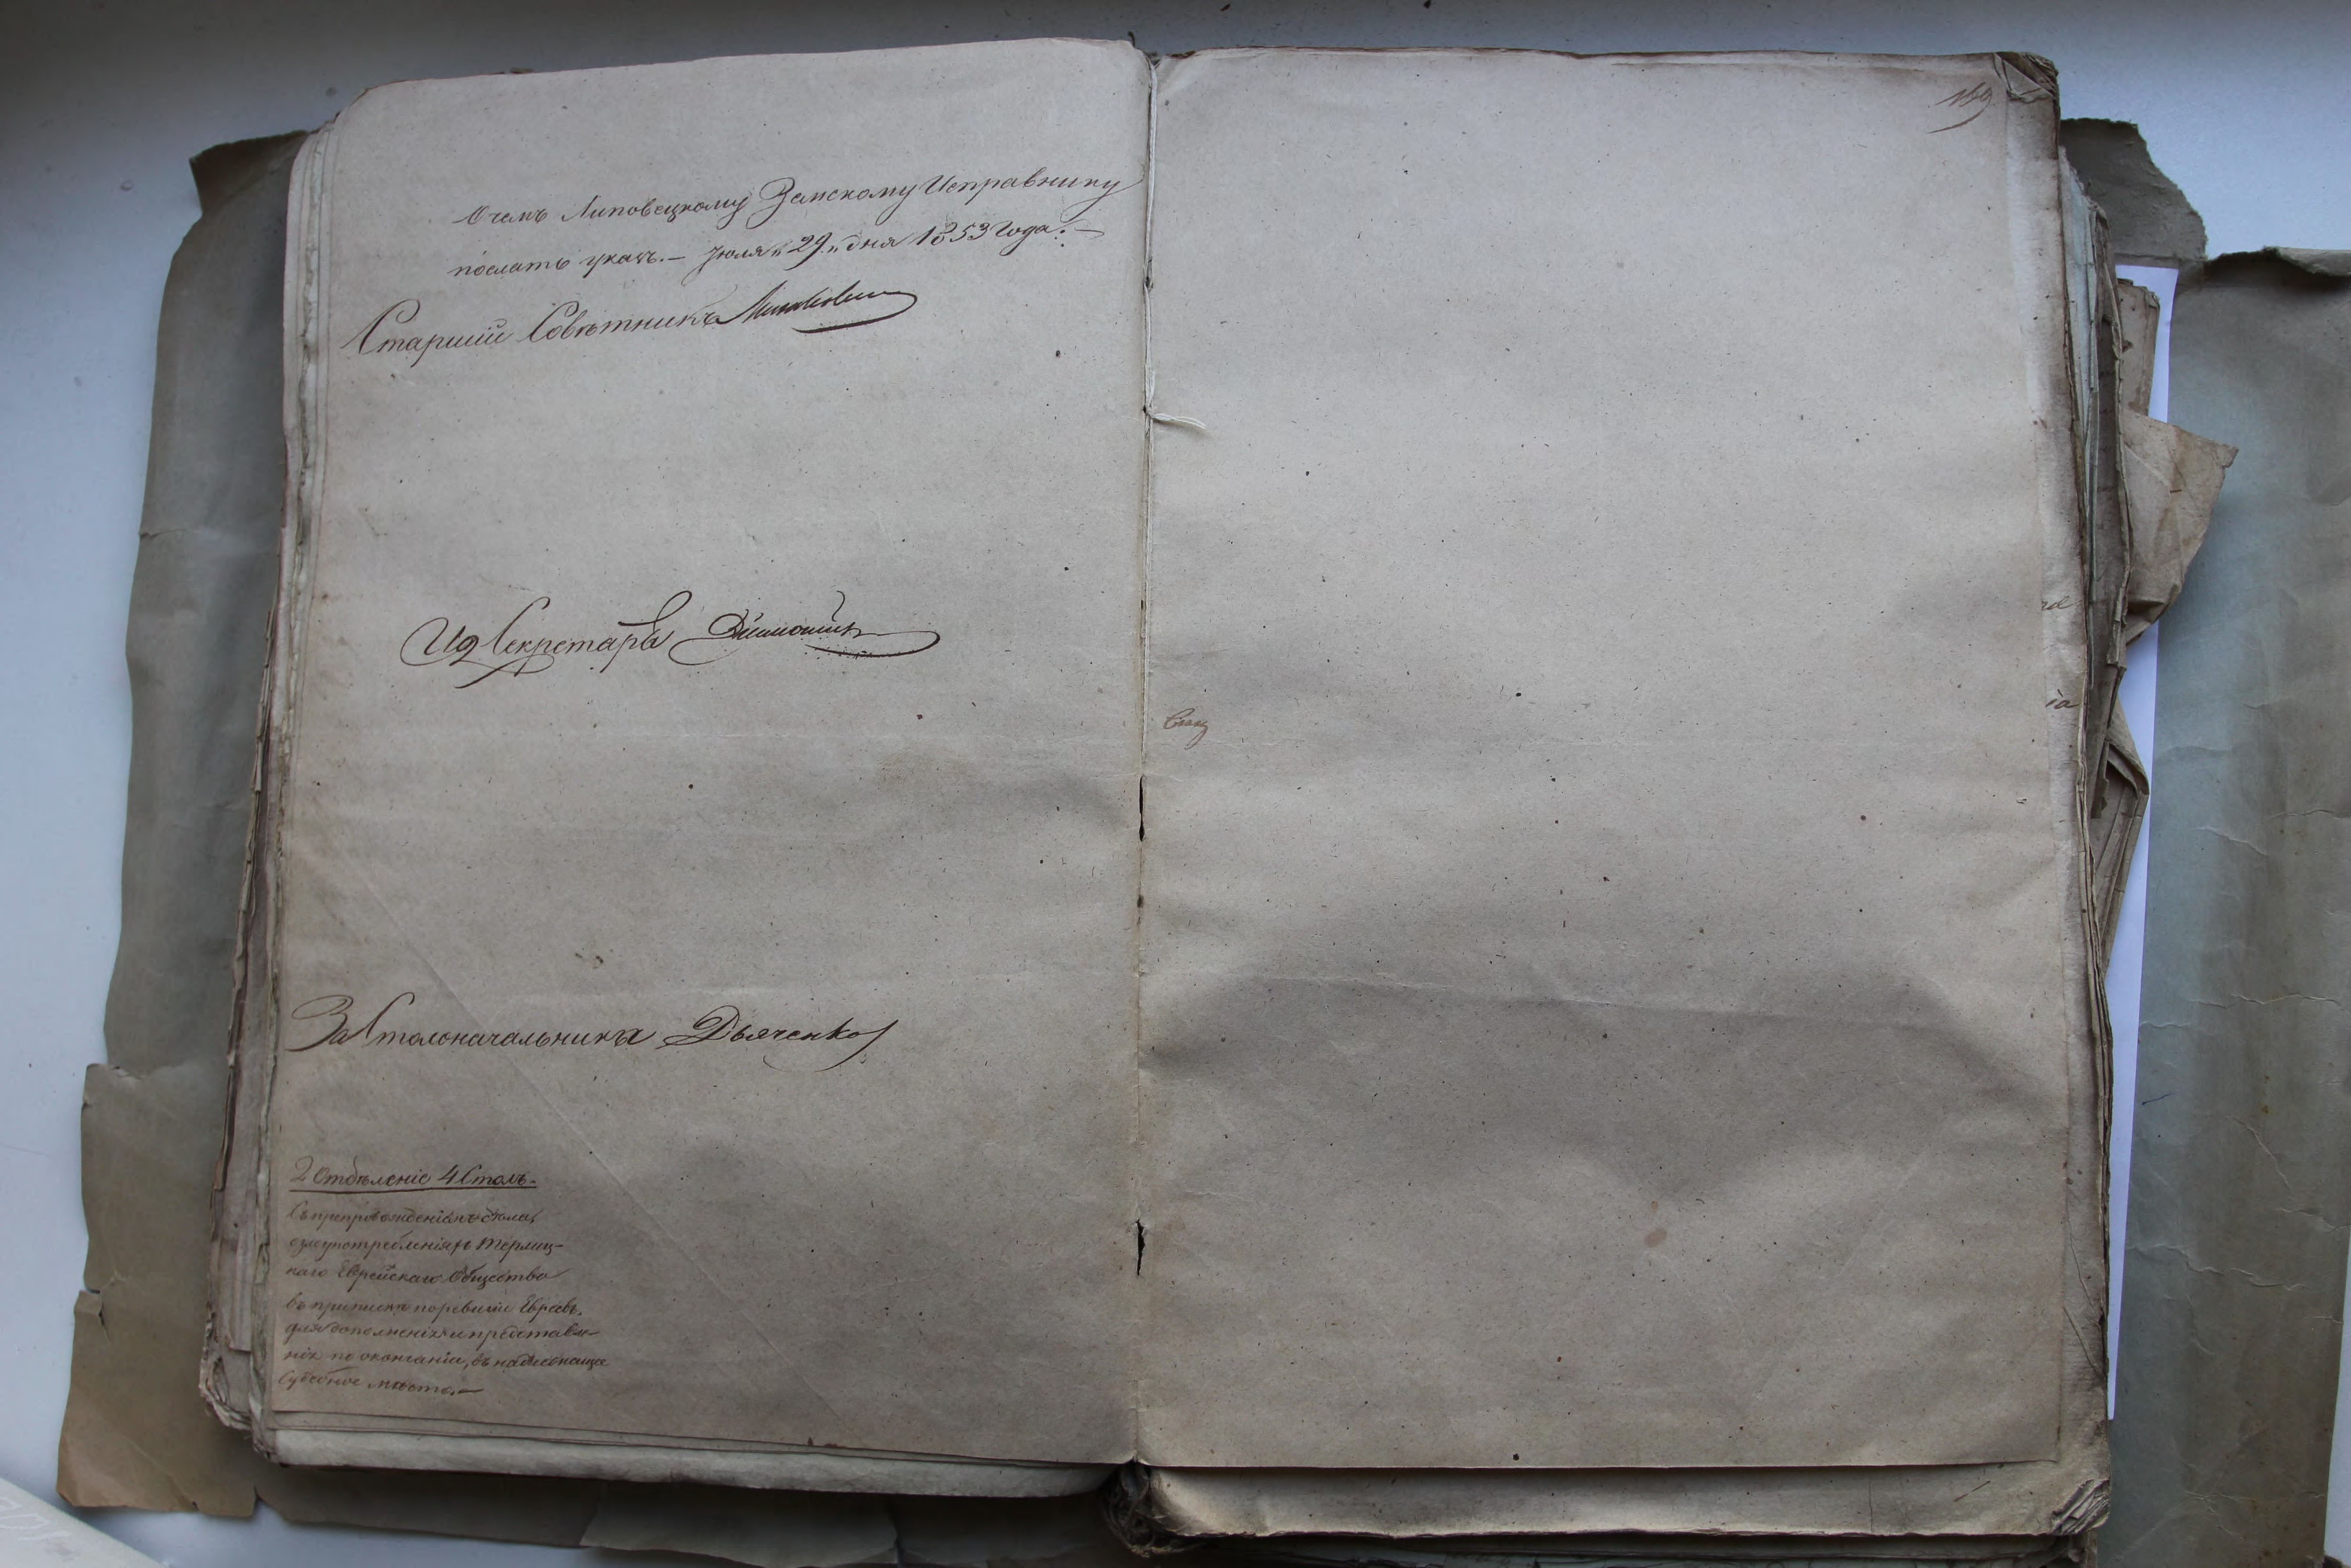 О чемъ Липовецкому Земскому Исправнику
послать указъ.— Іюля „29„ дня 1853 года.—
Старшій Совѣтникъ
Ид Секретаря
За Столоначальника Дьяченко
2 Отдѣленіе 4 Столъ.
Съ препровожденіемъ дѣла,
о злоупотребленіяхъ Терлиц-
каго Еврейскаго Общества
въ припискѣ по ревизіи Евреевъ,
для дополненія и представле-
нія по окончаніи, въ надлежащее
Судебное мѣсто.—
149